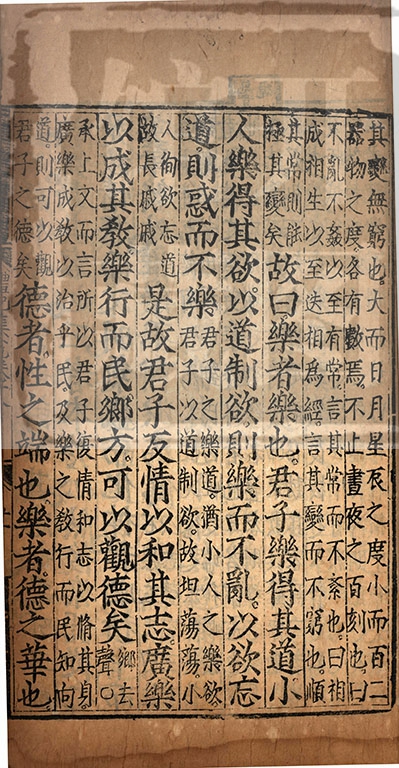 其變無窮也。大而日月星辰之度小而百工
器物之度各有數焉不止晝夜之百刻也。曰
不亂不姦以至有常言其常而不紊也。曰相
成相生以至迭相爲經言其變而不窮也。順
其常則能
極其變矣
故曰。樂者樂也。君子樂得其道小
人樂得其欲。以道制欲。則樂而不亂。以欲忘
道。則惑而不樂
君子之樂道。猶小人之樂欲。
君子以道制欲。故坦蕩蕩。小
人徇欲忘道
故長戚戚
是故君子反情以和其志廣樂
以成其教樂行而民鄉方。可以觀德矣
鄉去
聲○
承上文而言所以君子復情和志以脩其身
廣樂成教以治乎民。及樂之教行而民知向
道。則可以觀
君子之德矣
德者。性之端也樂者。德之華也